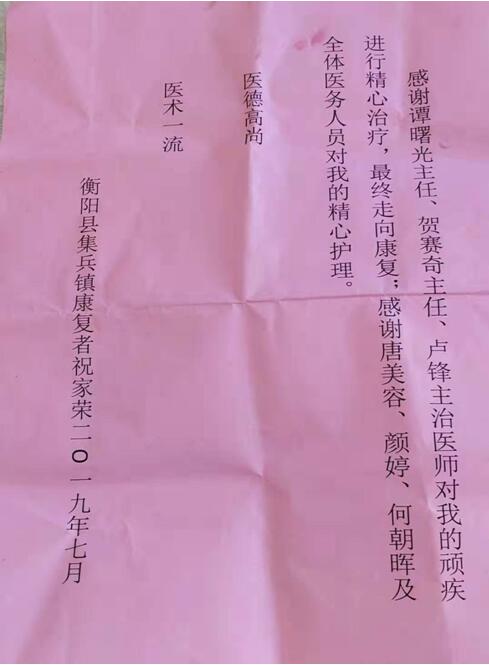 感谢谭曙光主任、贺赛奇主任、卢锋主治医师对我的顽疾
进行精心治疗，最终走向康复；感谢唐美容、颜婷、何朝晖及
全体医务人员对我的精心护理。
医德高尚
医术一流
衡阳县集兵镇康复者祝家荣二0一九年七月